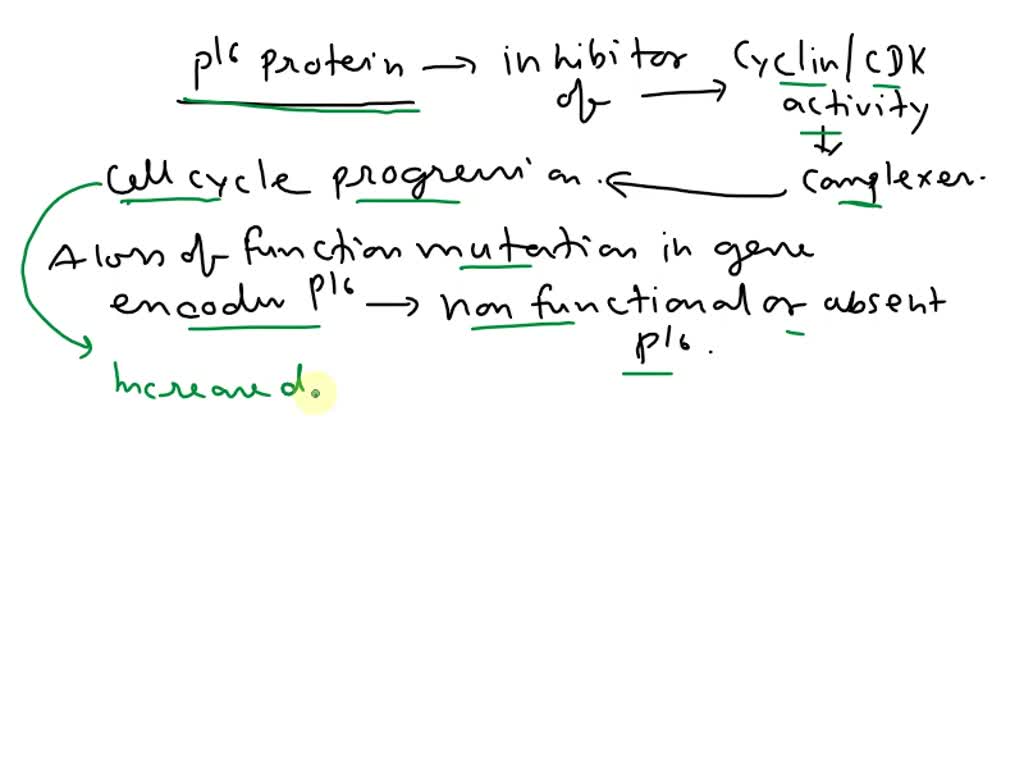 p16 protein → inhibitor of → Cyclin/CDK activity
↓
complexes.
cell cycle progression. ←
A loss of function mutation in gene
encodes p16 → non functional or absent
p16.
Increased.